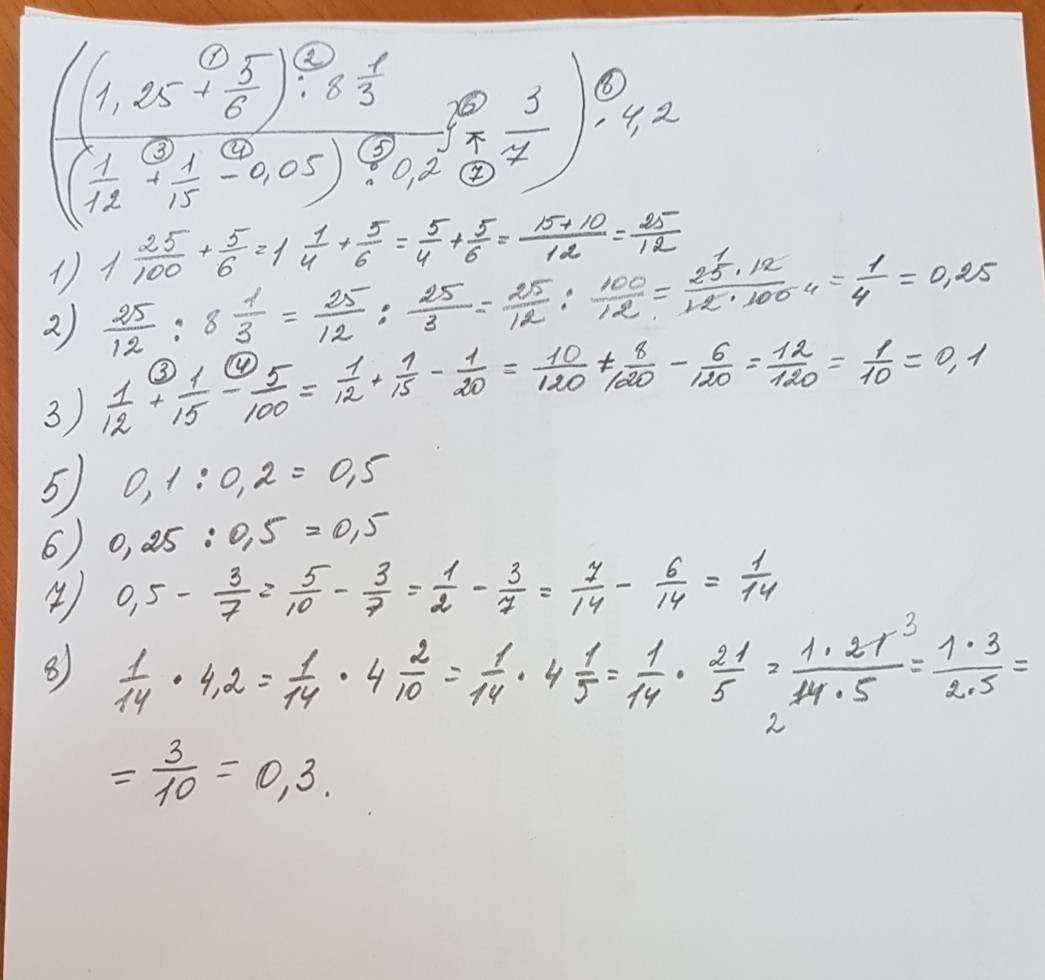 ((1,25 + 5/6) : 8 1/3
(1/12 + 1/15 - 0,05) : 0,2 - 3/7) · 4,2
1) 1 25/100 + 5/6 = 1 1/4 + 5/6 = 5/4 + 5/6 = (15+10)/12 = 25/12
2) 25/12 : 8 1/3 = 25/12 : 25/3 = 25/12 : 100/12 = (25·12)/(12·100) = 1/4 = 0,25
3) 1/12 + 1/15 - 5/100 = 1/12 + 1/15 - 1/20 = 10/120 + 8/120 - 6/120 = 12/120 = 1/10 = 0,1
5) 0,1 : 0,2 = 0,5
6) 0,25 : 0,5 = 0,5
7) 0,5 - 3/7 = 5/10 - 3/7 = 1/2 - 3/7 = 7/14 - 6/14 = 1/14
8) 1/14 · 4,2 = 1/14 · 4 2/10 = 1/14 · 4 1/5 = 1/14 · 21/5 = (1·21)/(14·5) = (1·3)/(2·5) =
= 3/10 = 0,3.